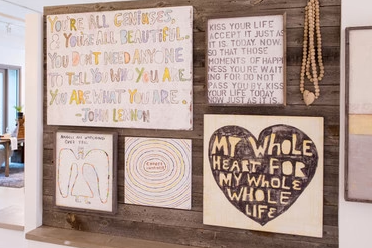 YOU'RE ALL GENIUSES,
& YOU'RE ALL BEAUTIFUL.
YOU DON'T NEED ANYONE
TO TELL YOU WHO YOU ARE.
YOU ARE WHAT YOU ARE.
-JOHN LENNON
KISS YOUR LIFE
ACCEPT IT JUST AS
IT IS. TODAY. NOW.
SO THAT THOSE
MOMENTS OF HAPPI
NESS YOU'RE WAIT
ING FOR DO NOT
PASS YOU BY. KISS
YOUR LIFE. TODAY
NOW JUST AS IT IS.
MY WHOLE
HEART FOR
MY WHOLE
WHOLE
LIFE